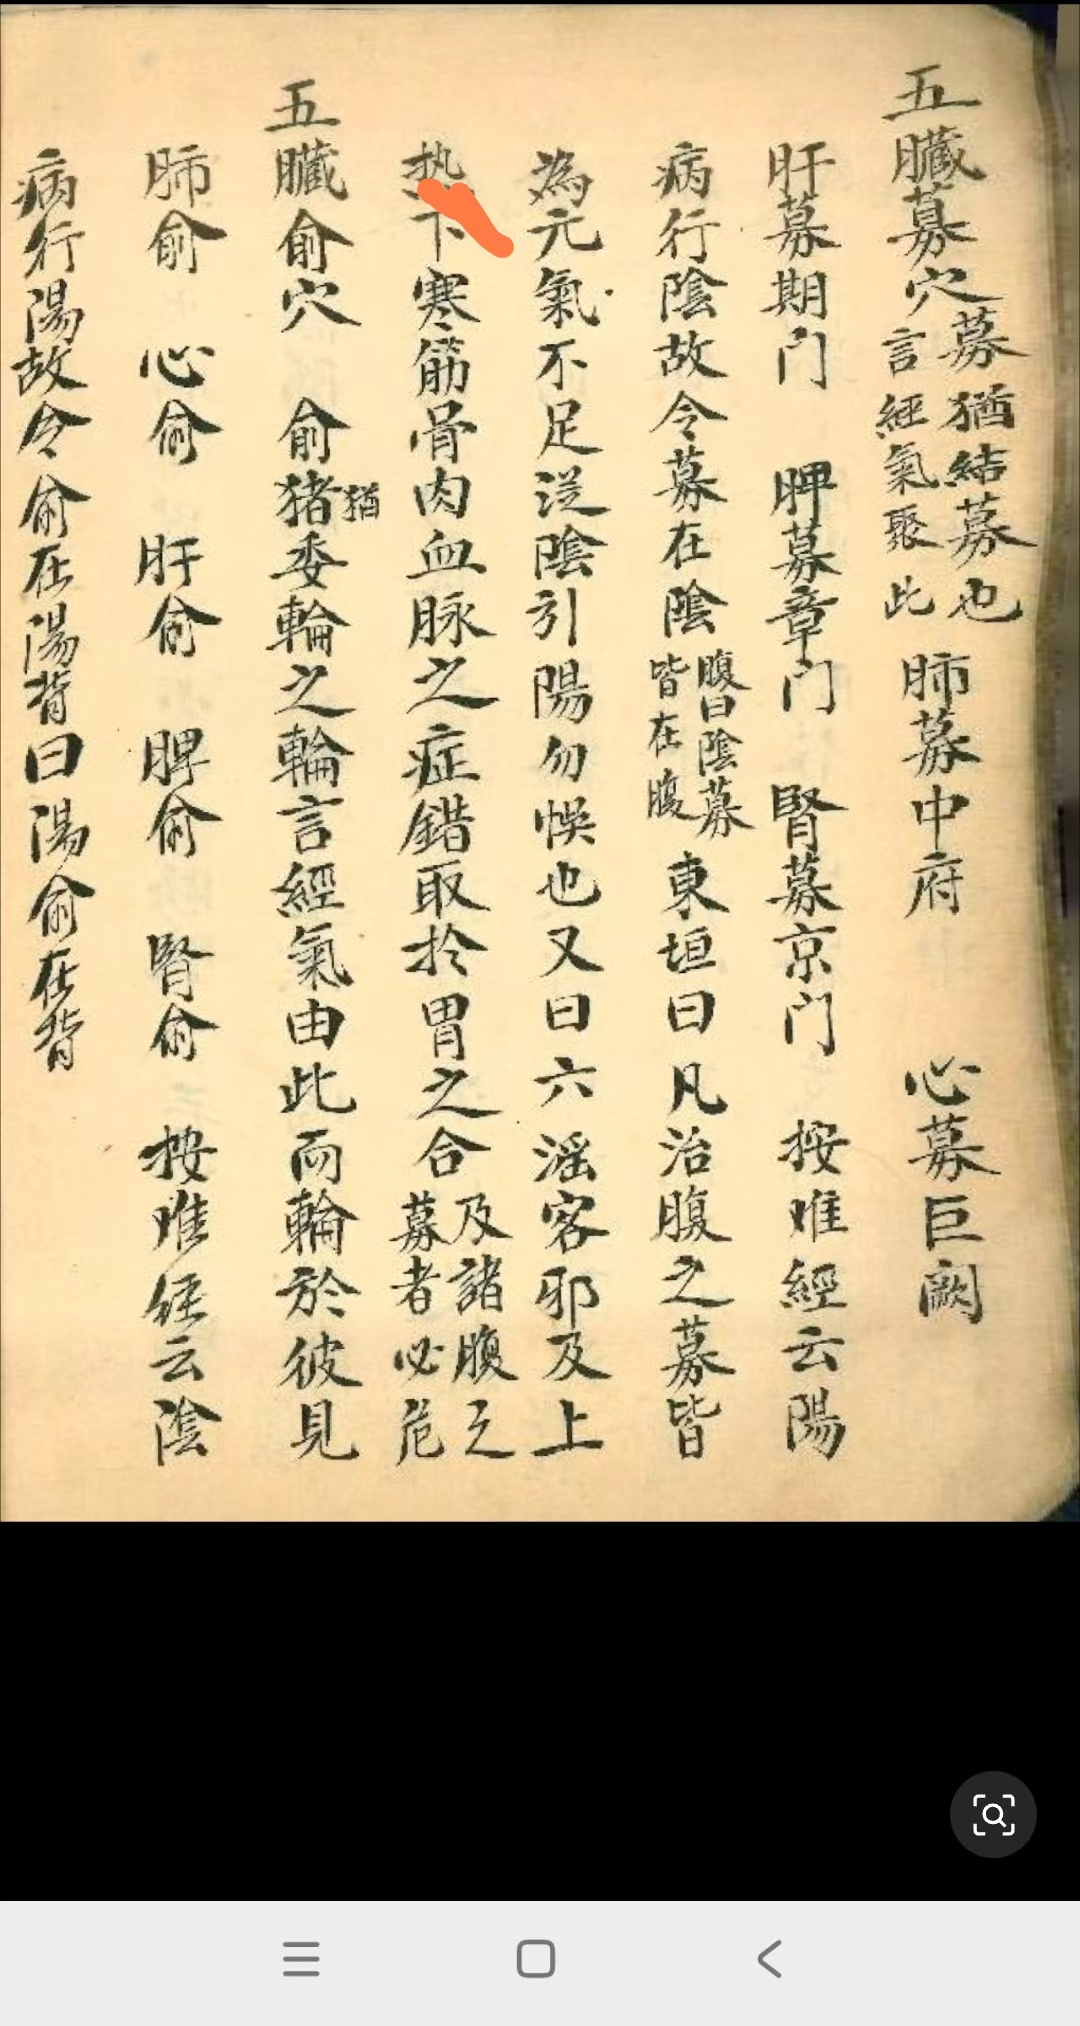 五臟募穴募猶結募也言經氣聚此肺募中府 心募巨闕
肝募期门 脾募章门 腎募京门 按难經云陽
病行陰故令募在陰腹曰陰募皆在腹東垣曰凡治腹之募皆
為元氣不足从陰引陽勿悞也又曰六淫客邪及上
热下寒筋骨肉血脉之症錯取於胃之合及諸腹之募者必危
五臟俞穴 俞猪猶委輪之輪言經氣由此而輪於彼見
肺俞 心俞 肝俞 脾俞 腎俞 按难経云陰
病行陽故令俞在陽背曰陽俞在背